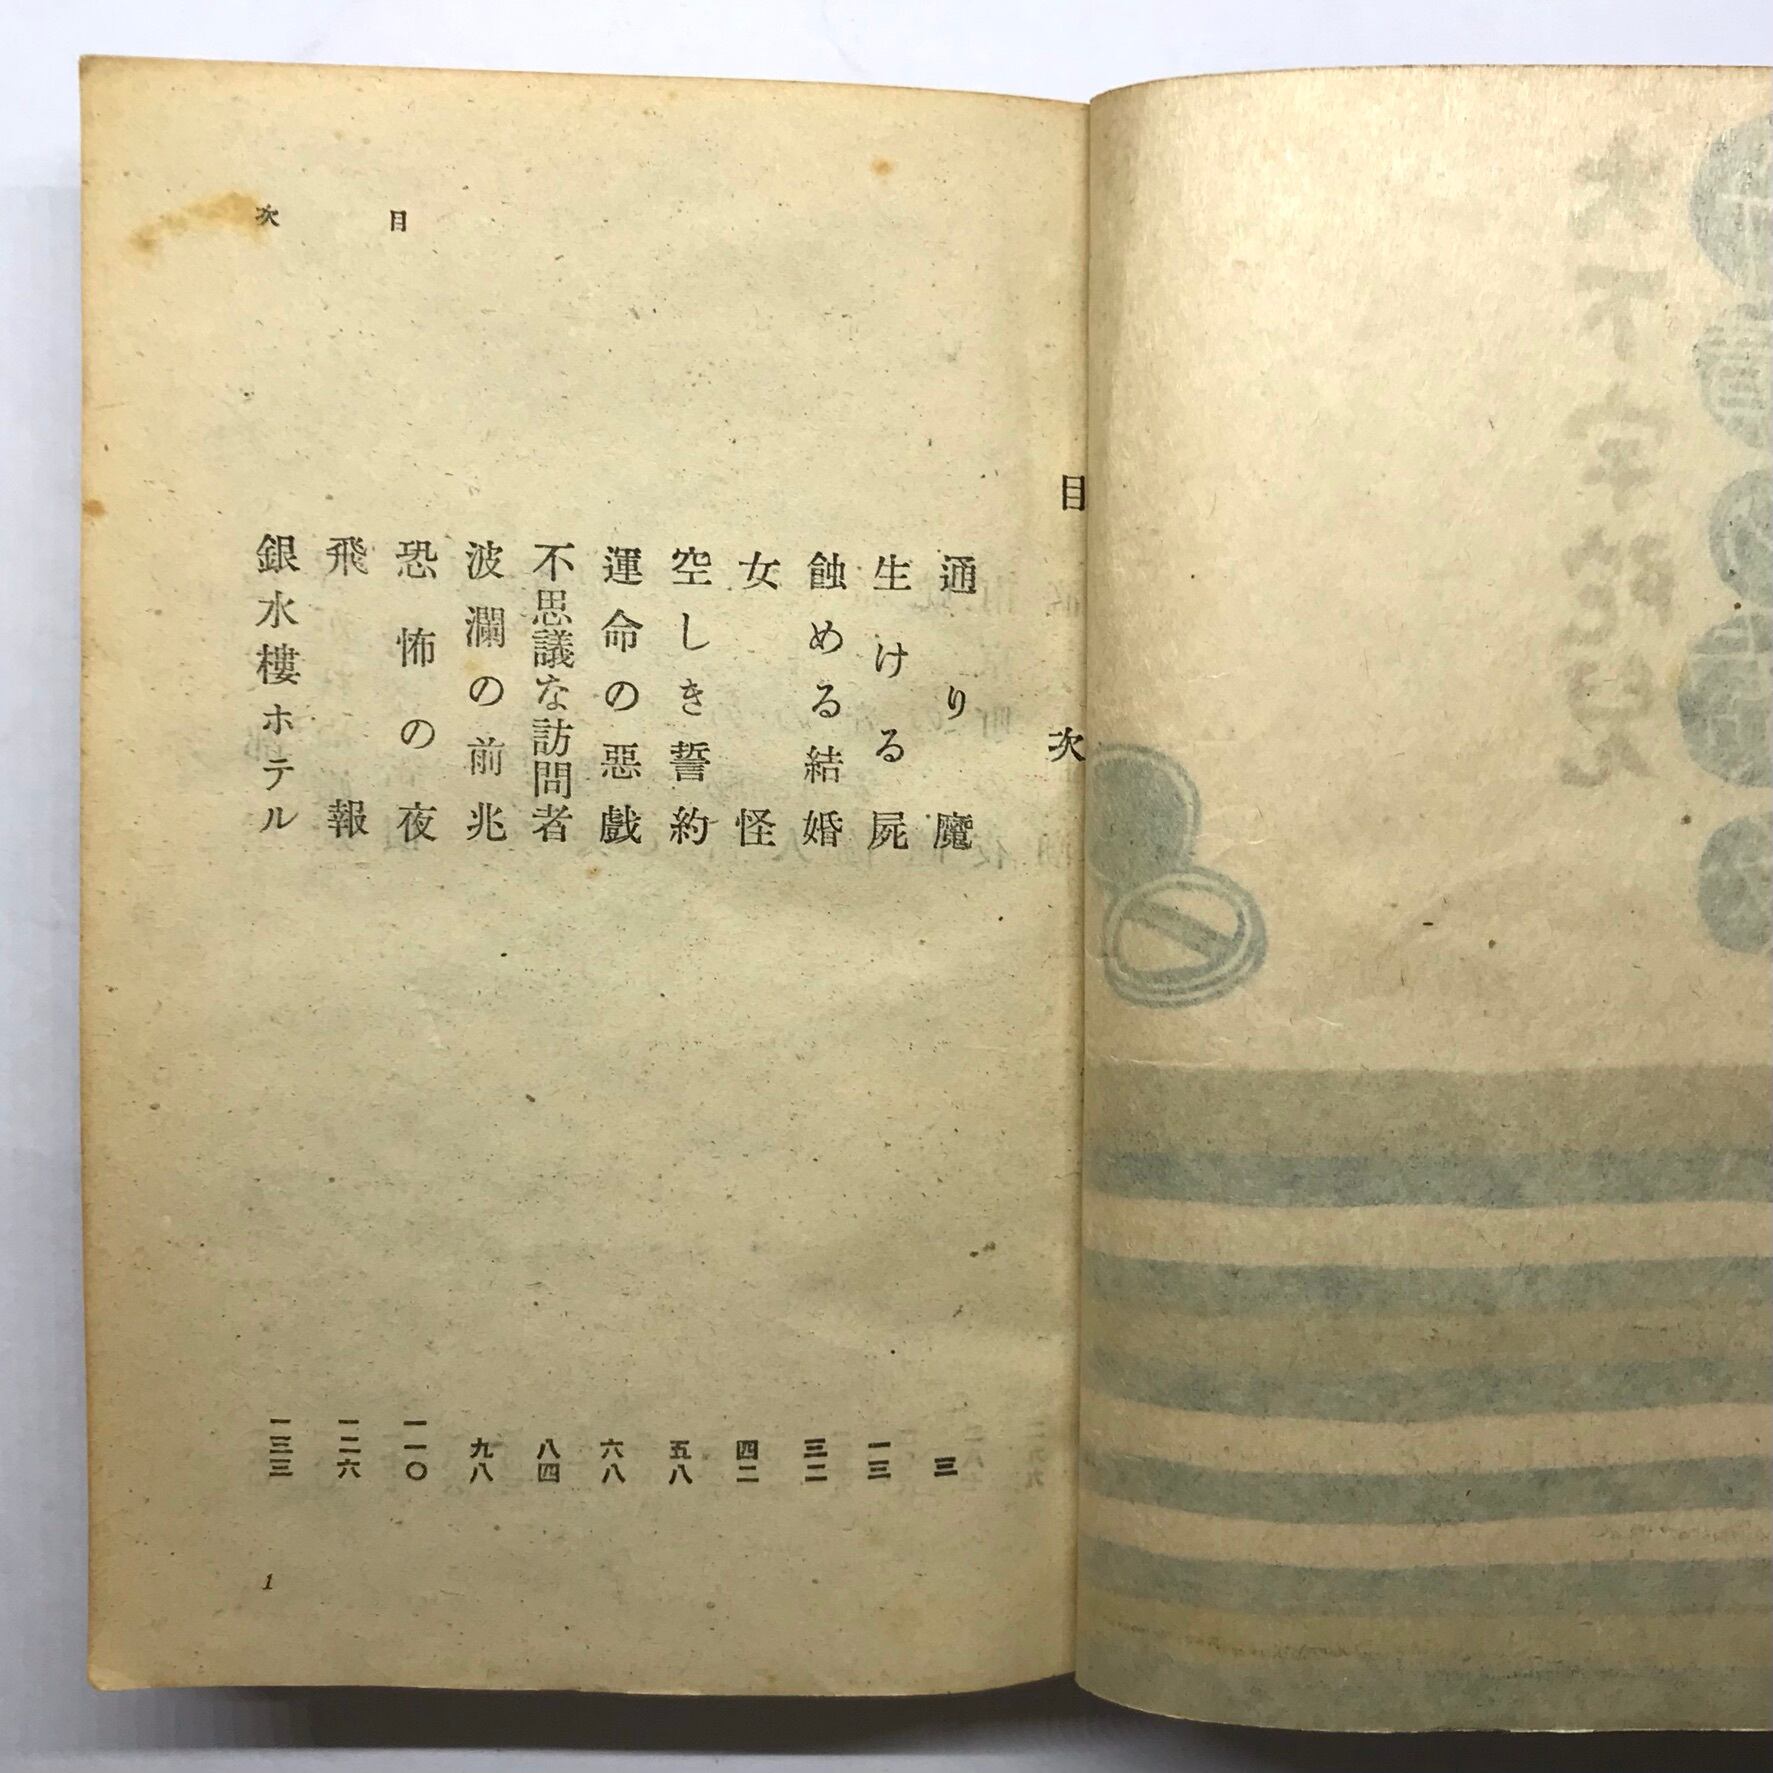 目次
目次
通り魔 三
生ける屍 一三
蝕める結婚 三二
女怪 四二
空しき誓約 五八
運命の惡戯 六八
不思議な訪問者 八四
波瀾の前兆 九八
恐怖の夜 一一〇
飛報 一二六
銀水樓ホテル 一三三
1